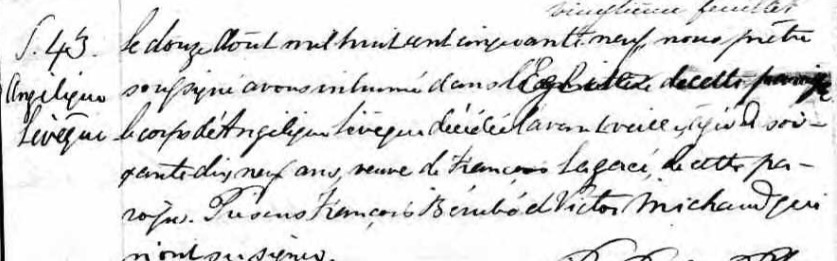 vingtième feuillet
S. 43. le douze Août mil huit cent cinquante neuf, nous prêtre
Angélique soussigné avons inhumé dans l'Eglise de cette paroisse
Lévêque le corps d'Angélique Lévêque décédée l'avant veille agée de soi-
xante dix neuf ans, veuve de François Lagacé, de cette pa-
roisse. Présens François Bérubé et Victor Michaud qui
n'ont su signer.